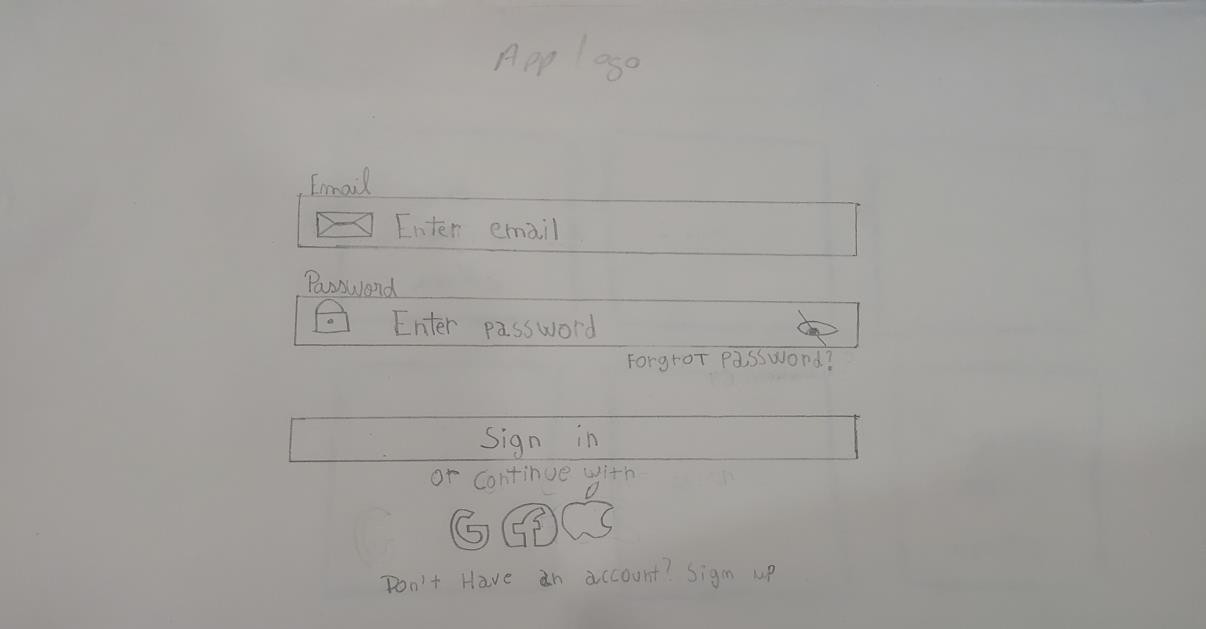 App logo
Email
Enter email
Password
Enter password
Forgrot password?
Sign in
or continue with
G f
Don't Have an account? Sign up